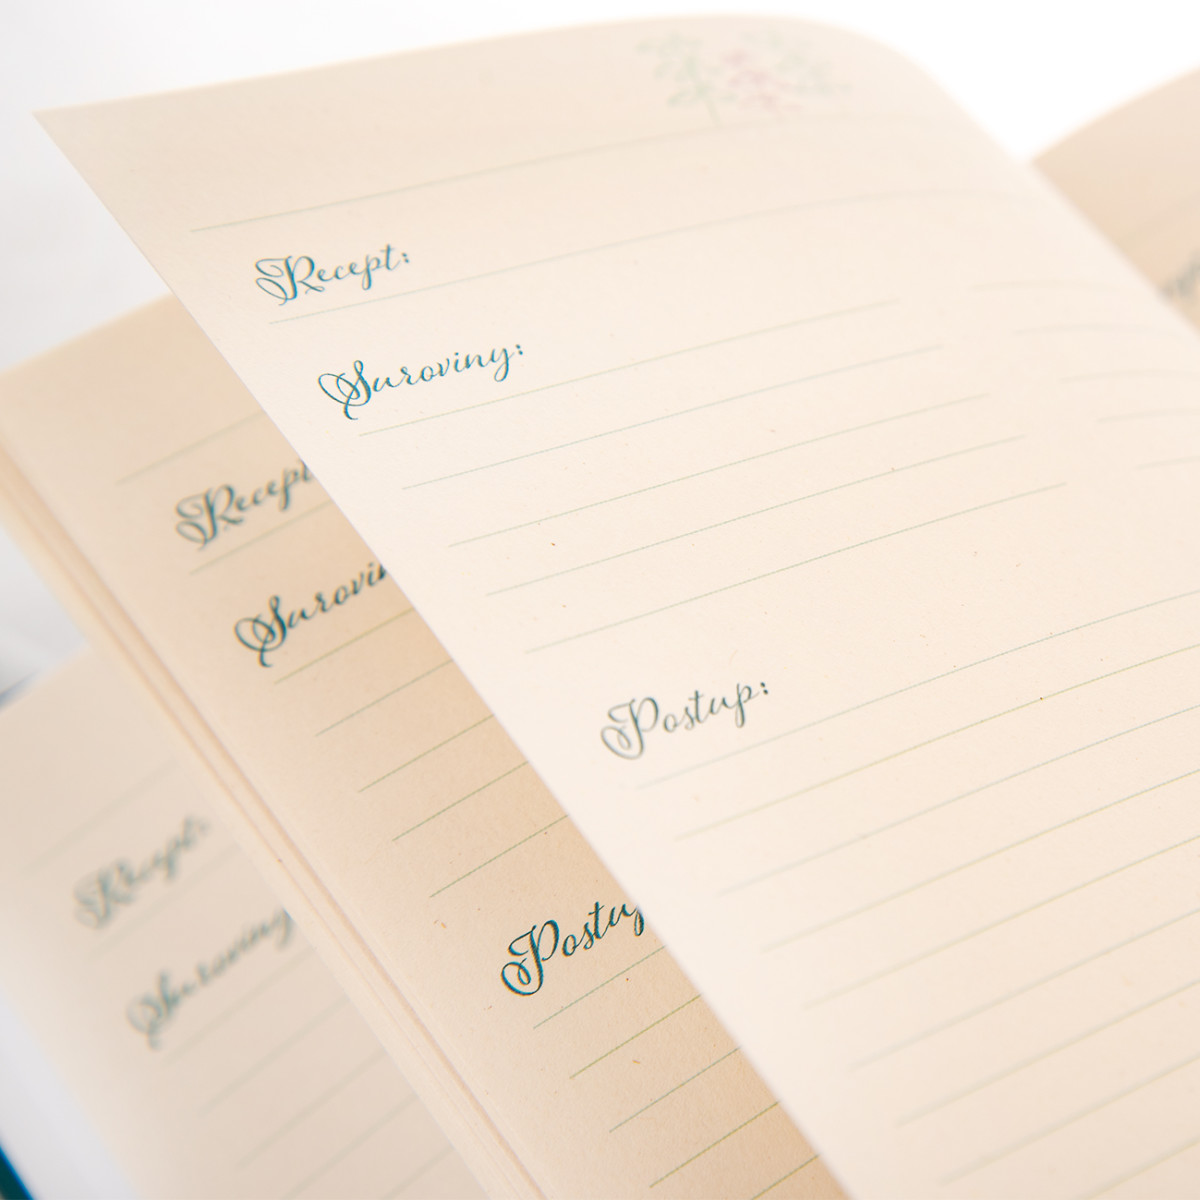 Recept:
Suroviny:
Postup:
Recept
Surovin
Postup
Recept:
Suroviny